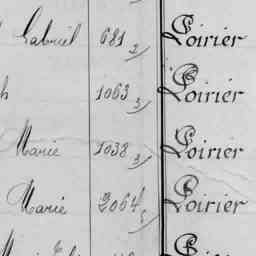 Gabriel 681 2 Poirier
h 1063 3 Poirier
Marie 1038 3 Poirier
Marie 2064 5 Poirier